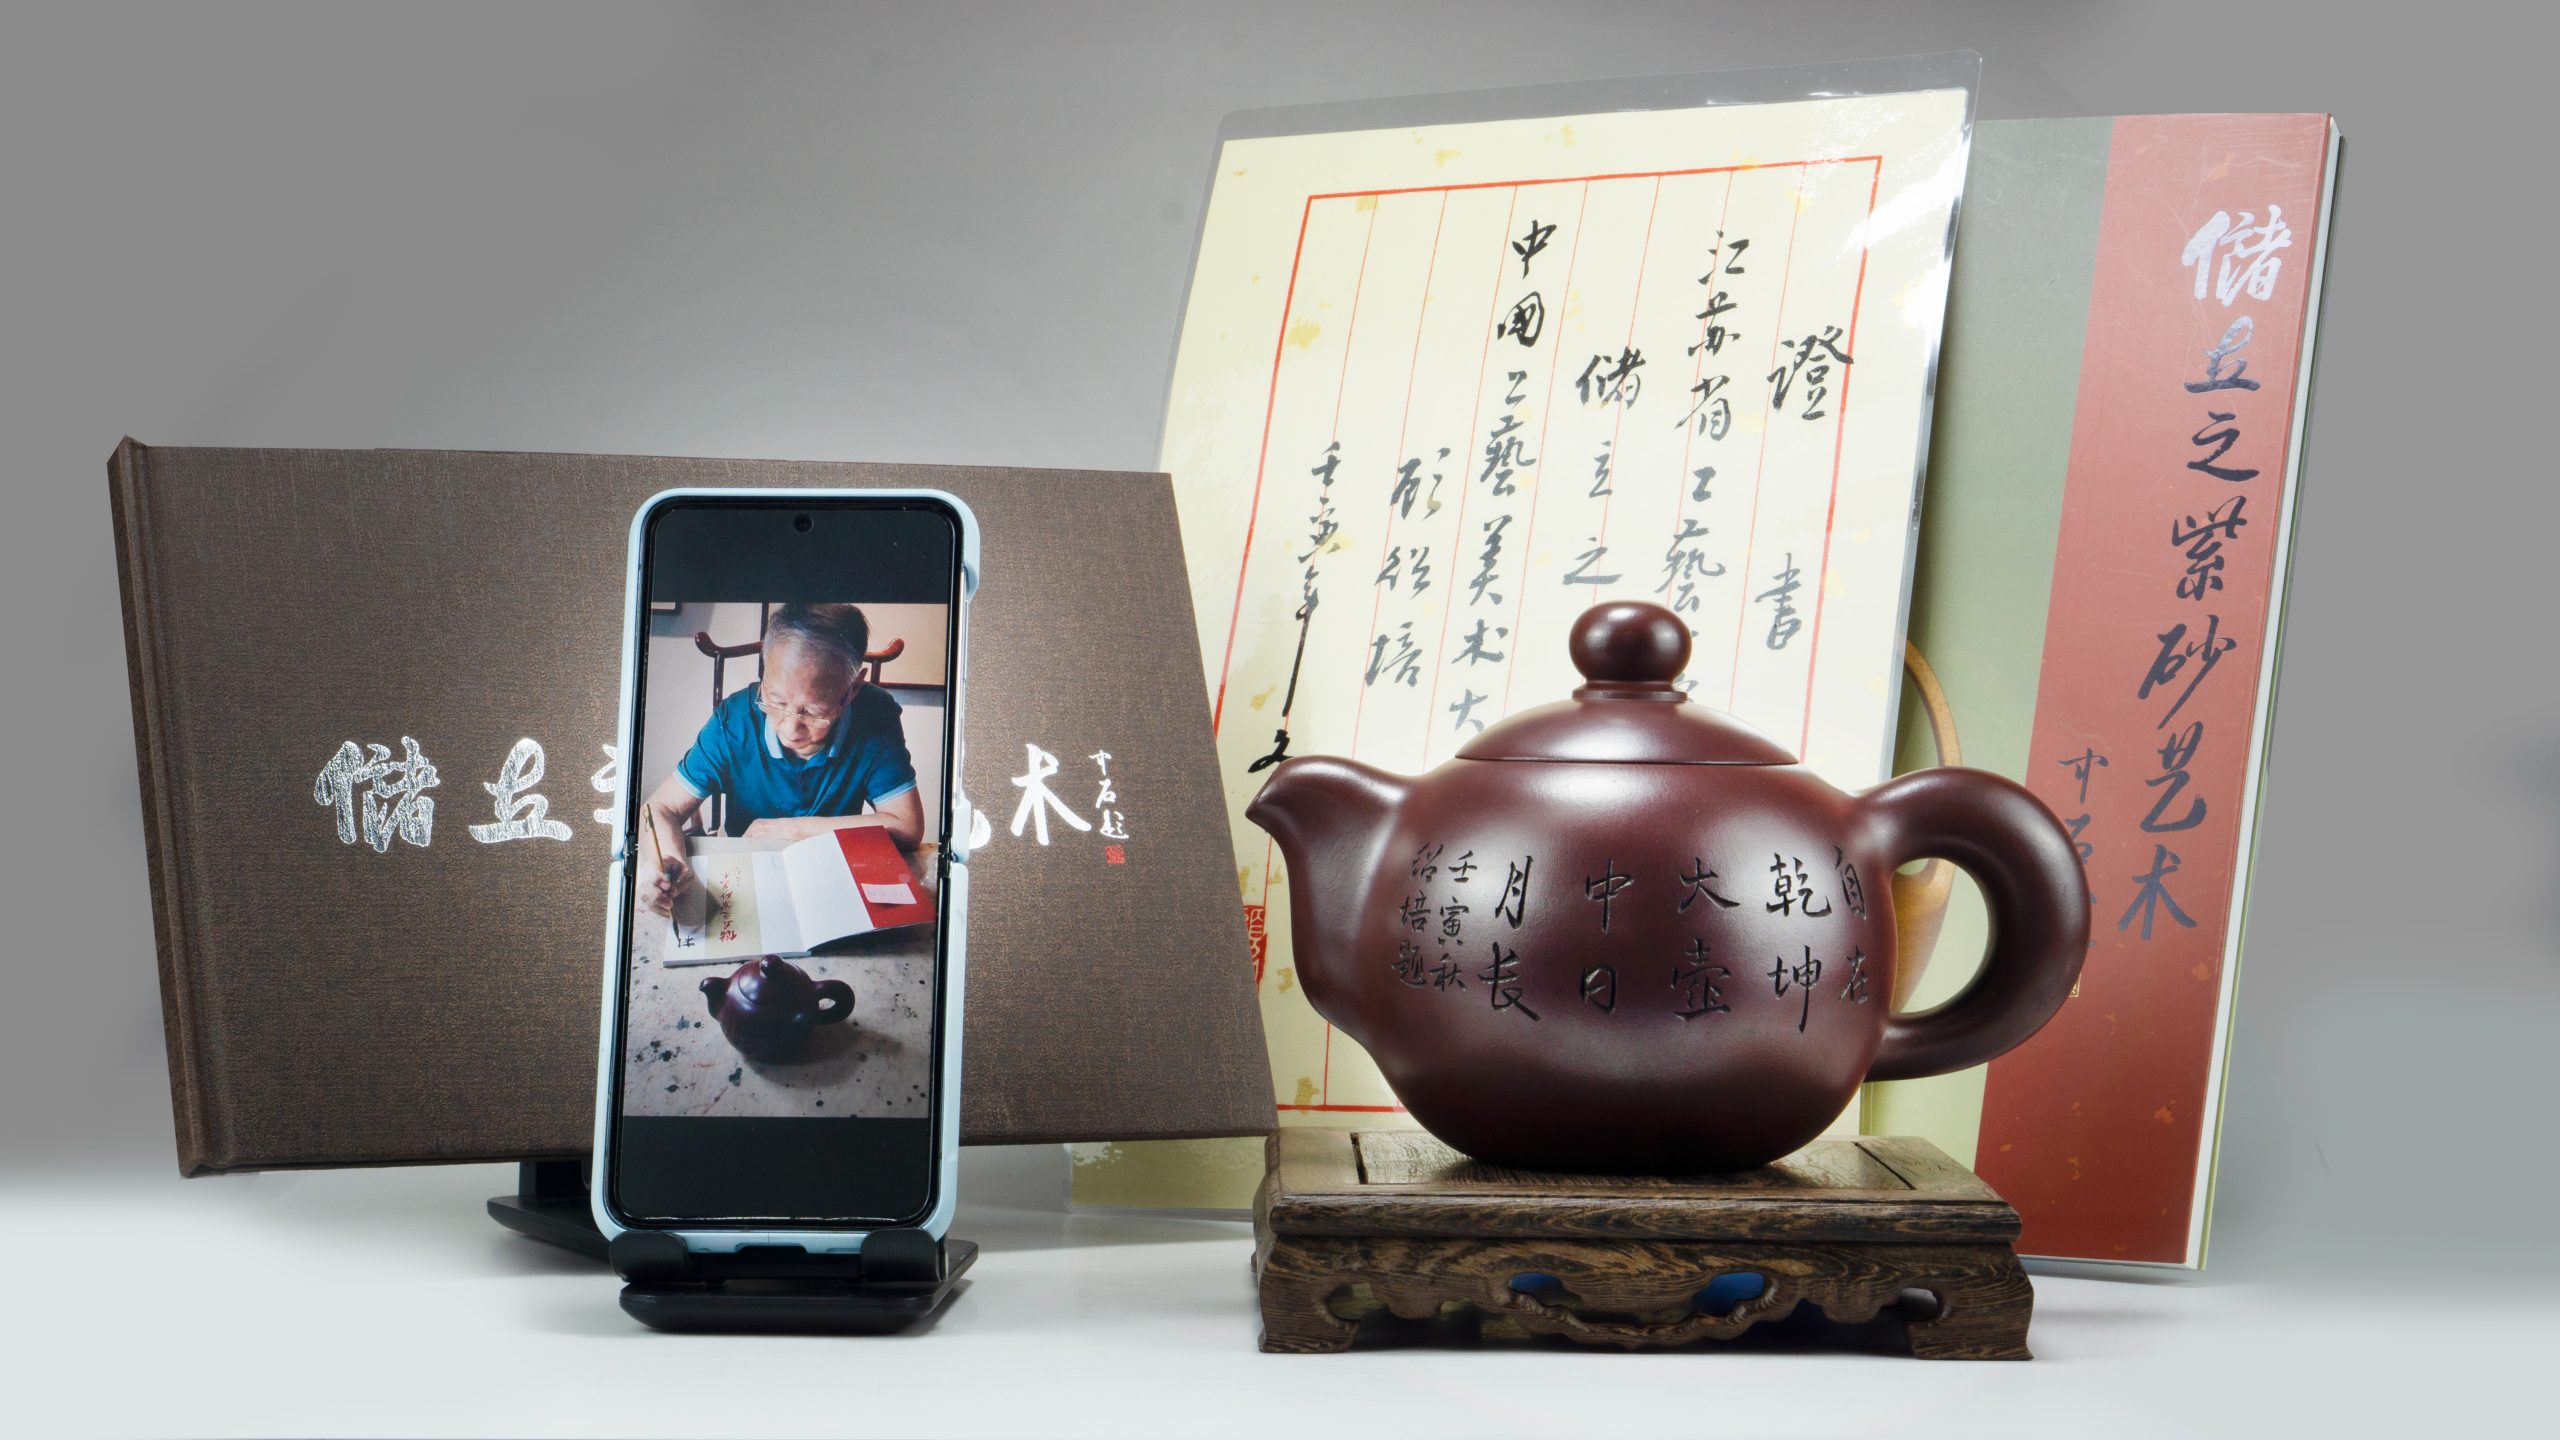 儲立之
艺术
中石题
證書
江苏省工藝
儲立之
中國工藝美术大
顾绍培
壬寅年
儲立之紫砂艺术
中石
自在
乾坤
大壶
中日
月长
壬寅秋
绍培题